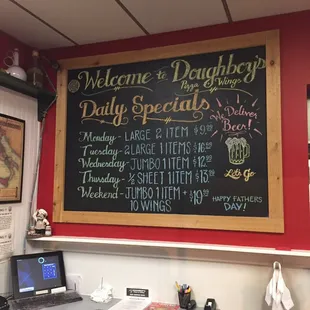 Welcome to Doughboy's
Pizza Wings
Daily Specials
Monday - LARGE 2 ITEM $9.99
Tuesday - 2 LARGE 1 ITEMS $16.99
Wednesday - JUMBO 1 ITEM $12.99
Thursday - ½ SHEET 1 ITEM $13.99
Weekend - JUMBO 1 ITEM + $19.99
10 WINGS
We Deliver
Beer!
Let's
Go
HAPPY FATHERS
DAY!